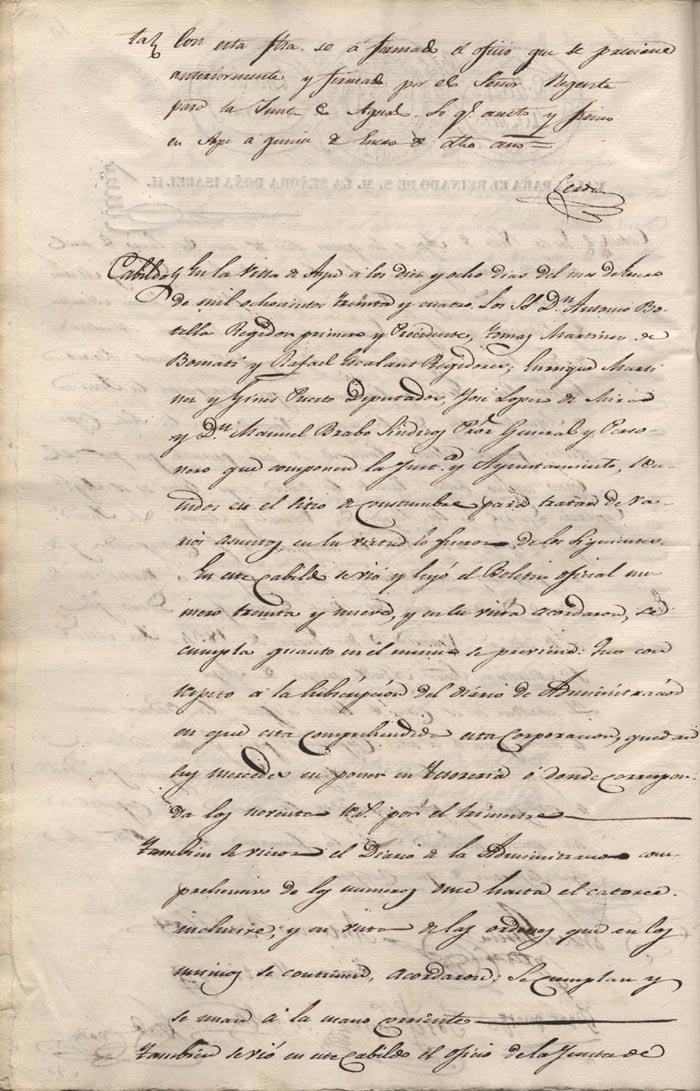 Con esta fha. se a formado el oficio que se previene
anteriormente y firmado por el Señor Regente
para la Junta de Aguas. Lo q.e anoto y firmo
en Aspe a quince de Enero de dho. año =
Cerdan
PARA EL REINADO DE S. M. LA SEÑORA DOÑA ISABEL II.
Cabildo En la Villa de Aspe a los diez y ocho dias del mes de Enero
de mil ochocientos treinta y cuatro. Los SS. D.n Antonio Bo-
tella Regidor primero y Precidente, Tomas Martinez de
Bomati y Rafael Escalant Regidores; Enrique Marti-
nez y Gines Puerto Diputados, José Lopez de Mira
y D.n Manuel Brabo Sindicos Pror General y Perso-
nero que componen la Junt.a y Ayuntamiento, reu-
nidos en el sitio de constumbre para tratar de va-
rios asuntos, en su virtud lo fueron de los siguientes.
En este Cabildo se vió y leyó el Boletin oficial nu-
mero treinta y nueve, y en su vista acordaron, se
cumpla quanto en el mismo se previene: con
respeto á la subscripcion del Diario de Administracion
en que esta comprehendida esta Corporacion, quedan
sus mercedes en poner en Tesoreria ó donde correspon-
da los noventa r.s por el trimestre
Tambien se vieron el Diario de la Administracion com-
prehensivo de los numeros once hasta el catorce
inclusive; y en vista de las ordenes que en los
mismos se contienen, acordaron: Se cumplan y
se unan á la mano corriente
Tambien se vió en este Cabildo el oficio de la Junta de